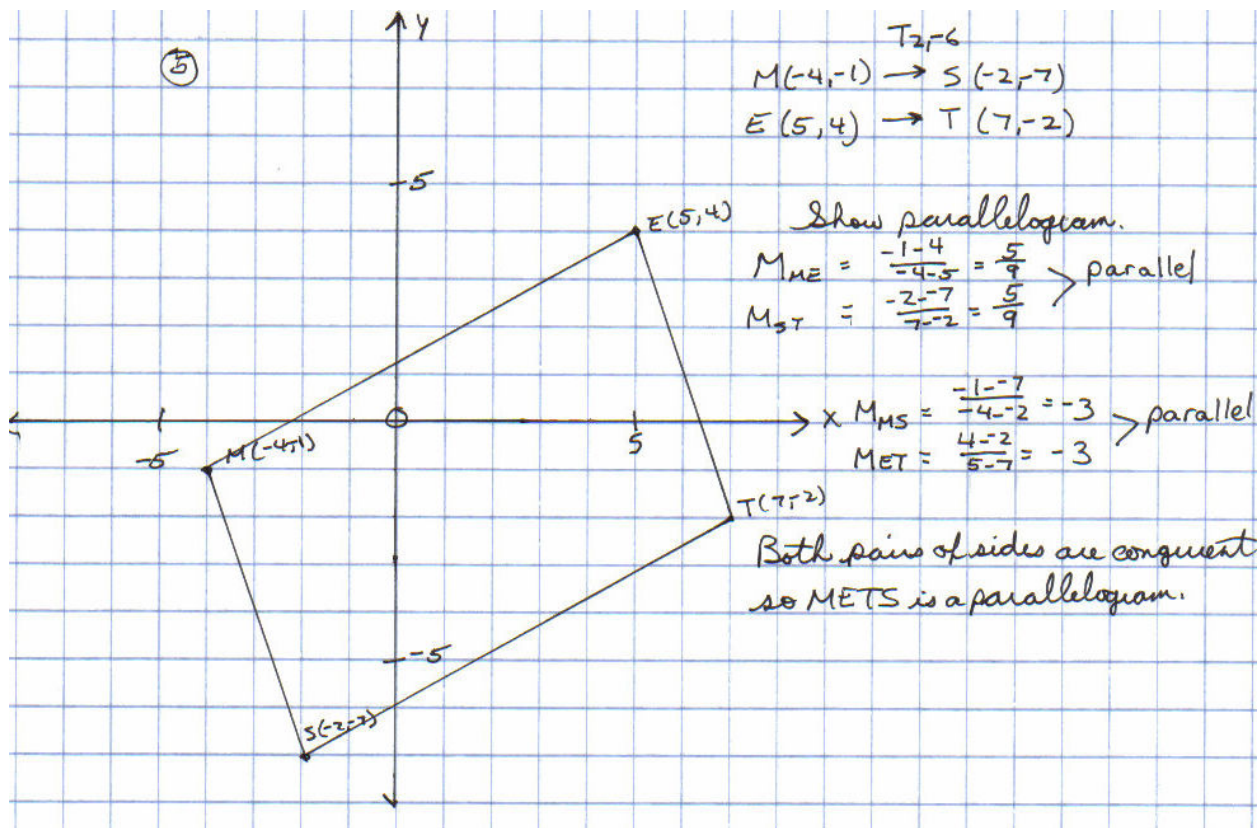 5
y
T2,-6
M(-4,-1) → S(-2,-7)
E(5,4) → T(7,-2)
5
E(5,4)
Show parallelogram.
M_ME = (-1-4)/(-4-5) = 5/9
M_ST = (-2--7)/(7--2) = 5/9 > parallel
x
M_MS = (-1--7)/(-4--2) = -3
M_ET = (4--2)/(5-7) = -3 > parallel
-5
M(-4,-1)
0
5
T(7,-2)
Both pairs of sides are congruent
so METS is a parallelogram.
-5
S(-2,-7)